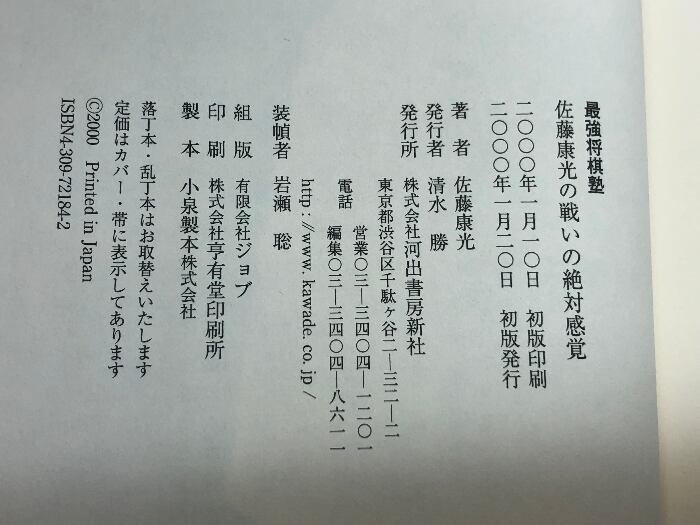 最強将棋塾
佐藤康光の戦いの絶対感覚
二〇〇〇年一月一〇日　初版印刷
二〇〇〇年一月二〇日　初版発行
著　者　佐藤康光
発行者　清水　勝
発行所　株式会社河出書房新社
東京都渋谷区千駄ヶ谷二―三二―二
電話　営業〇三―三四〇四―一二〇一
編集〇三―三四〇四―八六一一
http://www.kawade.co.jp/
装幀者　岩瀬　聡
組　版　有限会社ジョブ
印　刷　株式会社亨有堂印刷所
製　本　小泉製本株式会社
落丁本・乱丁本はお取替えいたします
定価はカバー・帯に表示してあります
©2000 Printed in Japan
ISBN4-309-72184-2